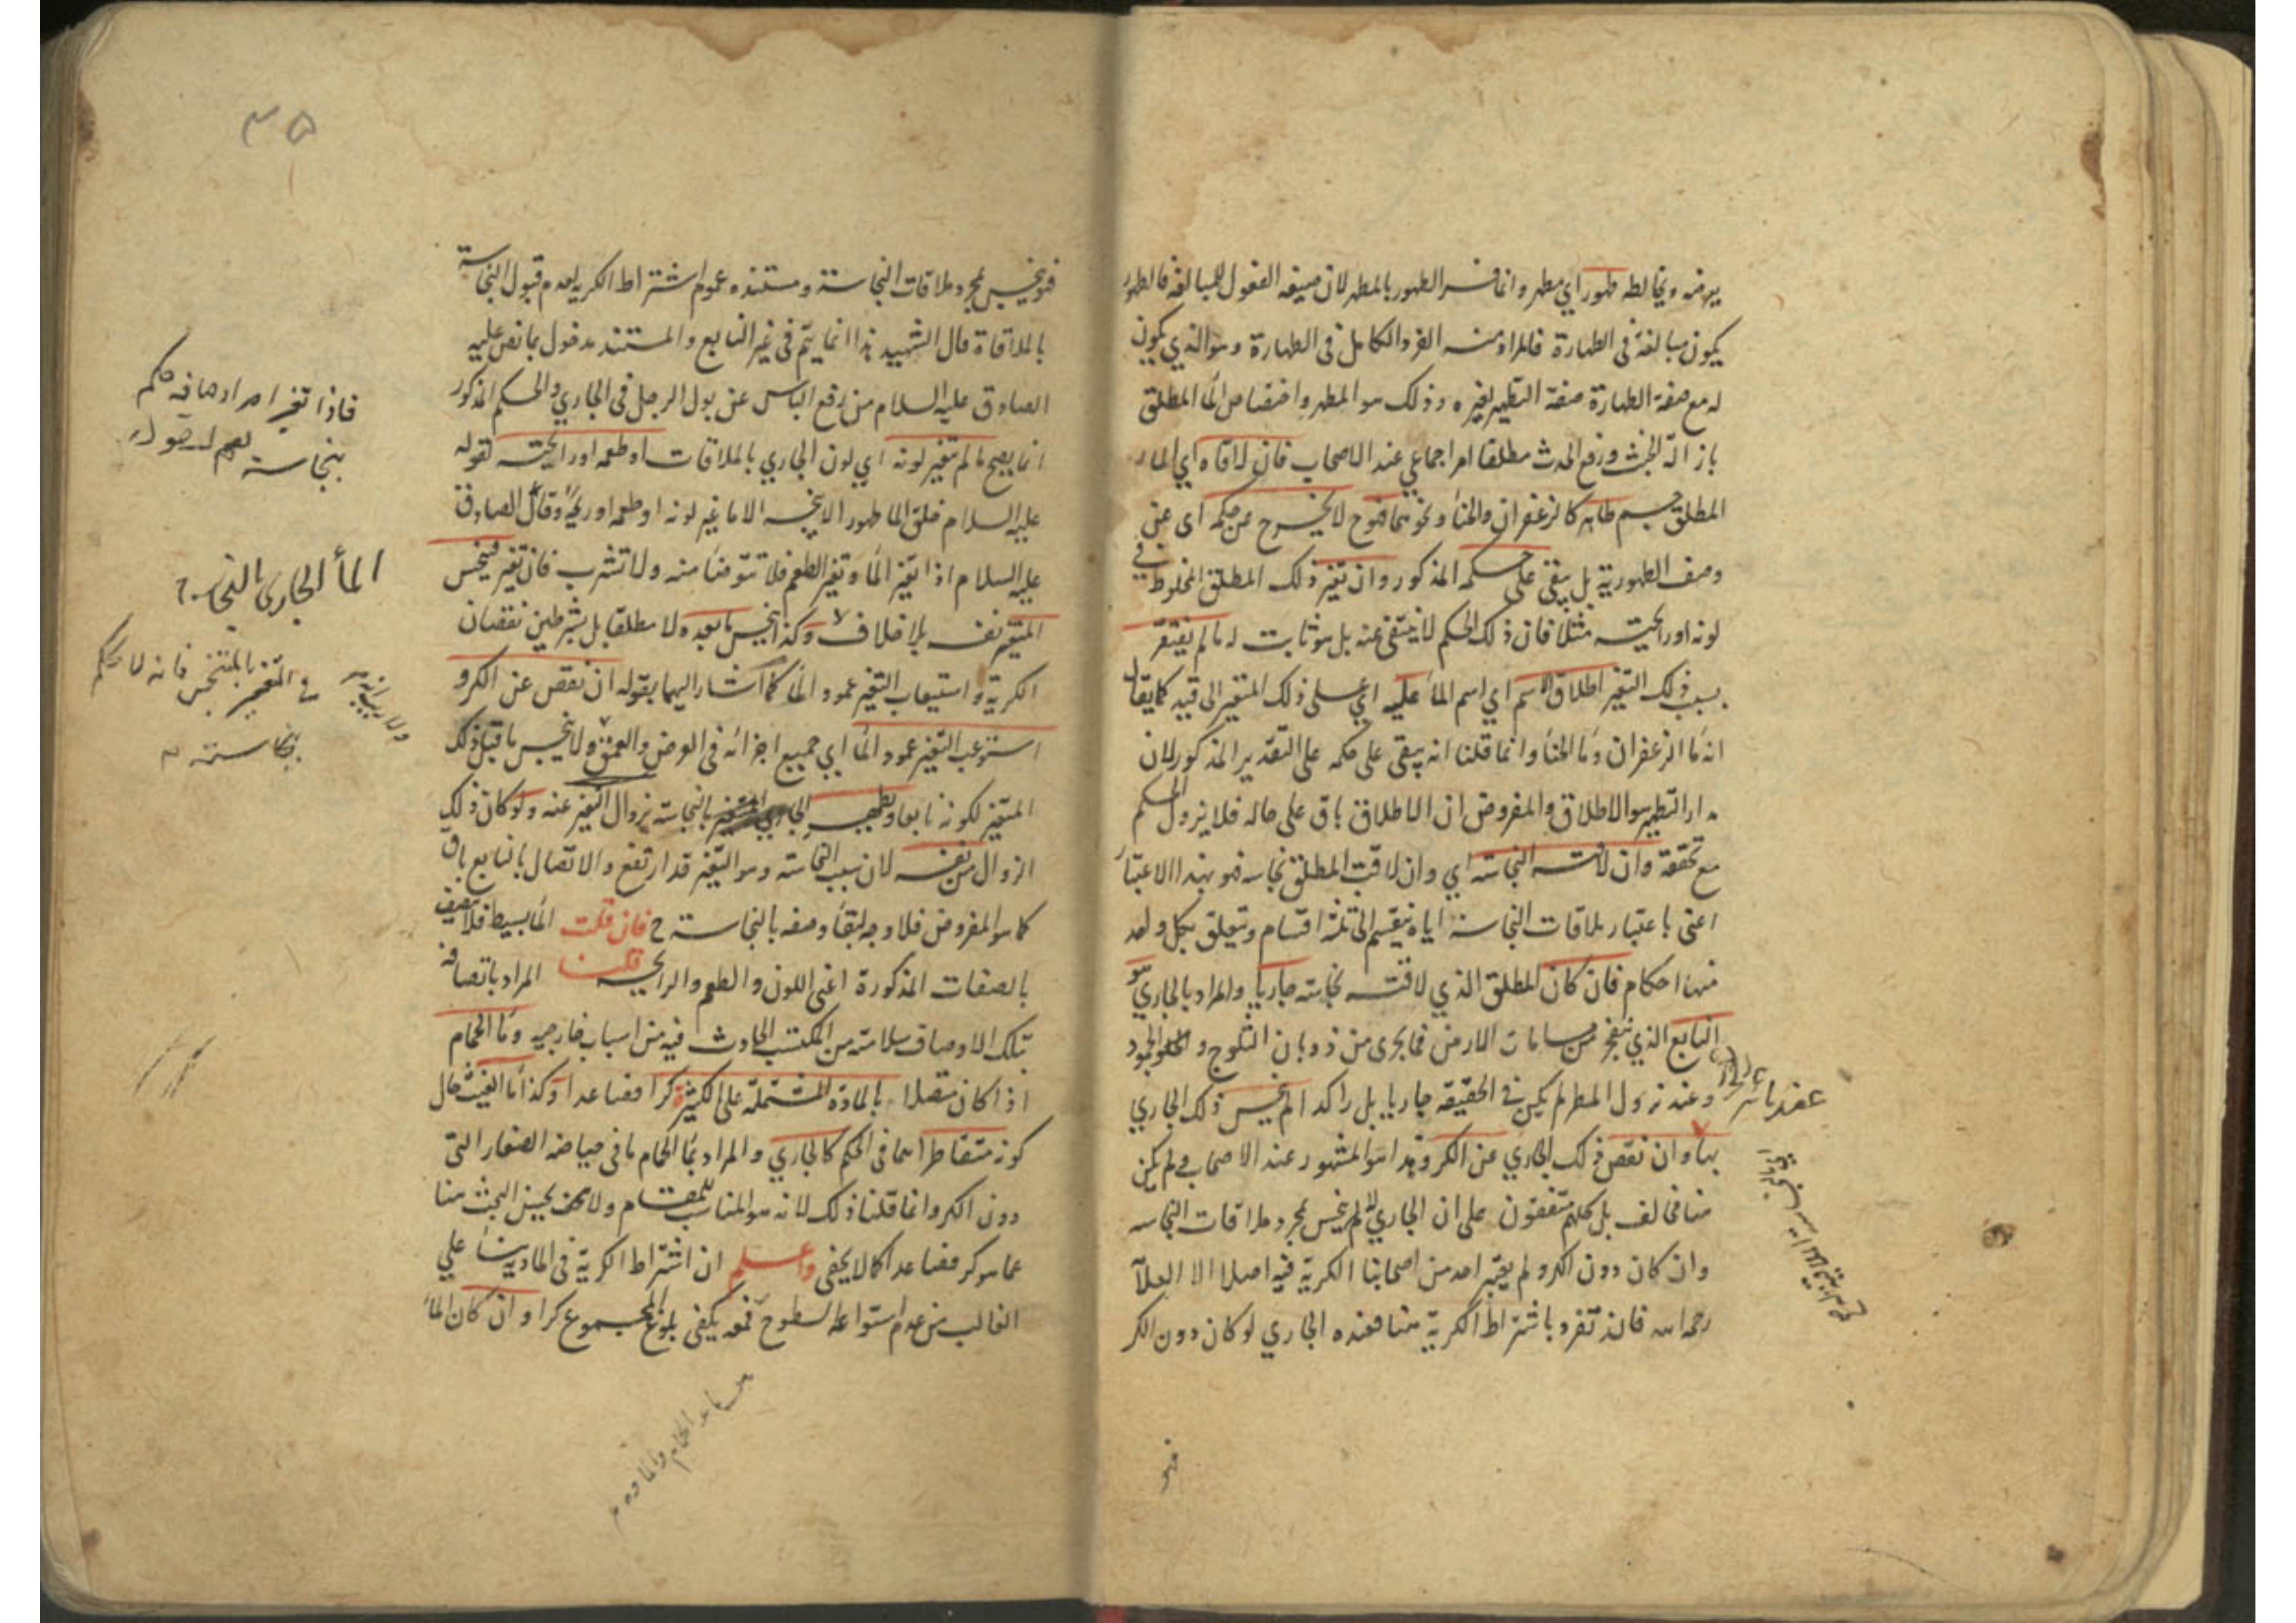 يرفه ويخالطه طهور اي مطهر وانما فسر الطهور بالمطهر لان صيغة الفعول للمبالغة فالطهور
يكون مبالغة في الطهارة فالمراد منه الفرد الكامل في الطهارة وهو الذي يكون
له مع صفة الطهارة صفة التطهير لغيره وذلك هو المطهر واختصاص الماء المطلق
بازالة الخبث ورفع الحدث مطلقا امر اجماعي عند الاصحاب فان لاقاه اي الماء
المطلق جسم طاهر كالزعفران والحناء ونحوهما فهو ح لا يخرج عن حكمه اى عن
وصف الطهورية بل يبقى على حكمه المذكور وان تغير ذلك المطلق المخلوط في
لونه او رايحته مثلا فان ذلك الحكم لا ينتفي عنه بل هو ثابت له ما لم يفتقر
بسبب ذلك التغير اطلاق الاسم اي اسم الماء عليه اي على ذلك المتغير الى قيد كما يقال
انه ماء الزعفران وماء الحناء وانما قلنا انه يبقى على حكمه على التقدير المذكور لان
مدار التطهير هو الاطلاق والمفروض ان الاطلاق باق على حاله فلا يزول الحكم
مع تحققه وان لاقته النجاسة اي وان لاقت المطلق نجاسة فهو بهذا الاعتبار
اعنى باعتبار ملاقات النجاسة اياه ينقسم الى ثلثة اقسام ويتعلق بكل واحد
منها احكام فان كان المطلق الذي لاقته نجاسة جاريا والمراد بالجاري هو
النابع الذي ينفجر من مسامات الارض فما يجرى من ذوبان الثلوج و الجمود
وعند نزول المطر لم يكن في الحقيقة جاريا بل راكدا لم ينجس ذلك الجاري
بها وان نقص ذلك الجاري عن الكر وهذا هو المشهور عند الاصحاب ولم يكن
منا مخالف بل كلهم متفقون على ان الجاري لا ينجس بمجرد ملاقات النجاسة
وان كان دون الكر ولم يعتبر احد من اصحابنا الكرية فيه اصلا الا العلامة
رحمه الله فانه تفرد باشتراط الكرية هنا فعنده الجاري لو كان دون الكر
فهو
فهو ينجس بمجرد ملاقات النجاسة ومستنده عموم اشتراط الكرية لعدم قبول النجاسة
بالملاقاة قال الشهيد هذا انما يتم في غير النابع والمستند مدخول بما نص عليه
الصادق عليه السلام من رفع الباس عن بول الرجل في الجاري والحكم المذكور
انما يصح ما لم يتغير لونه اي لون الجاري بالملاقات او طعمه او رايحته لقوله
عليه السلام خلق الماء طهورا لا ينجسه الا ما غير لونه او طعمه او ريحه وقال الصادق
عليه السلام اذا تغير الماء وتغير الطعم فلا تتوضأ منه ولا تشرب فان تغير فينجس
المتغير نفسه بلا خلاف وكذا ينجس ما بعده لا مطلقا بل بشرطين نقصان
الكرية واستيعاب التغير عمود الماء كما اشار اليهما بقوله ان نقص عن الكر و
استوعب التغير عمود الماء اي جميع اجزائه في العرض والعمق ولا ينجس ما قبل ذلك
المتغير لكونه نابعا ويطهر الجاري المتغير بالنجاسة بزوال التغير عنه ولو كان ذلك
الزوال من نفسه لان سبب النجاسة وهو التغير قد ارتفع والاتصال بالنابع باق
كما هو المفروض فلا وجه لبقاء وصفه بالنجاسة ح فان قلت الماء بسيط فلا يتصف
بالصفات المذكورة اعنى اللون والطعم والرايحة قلنا المراد باتصافه
بتلك الاوصاف سلامته من المكتسب الحادث فيه من اسباب خارجية وماء الحمام
اذا كان متصلا بالمادة المشتملة على الكثرة كرا فصاعدا وكذا ماء الغيث حال
كونه متقاطرا هما في الحكم كالجاري والمراد بماء الحمام ما في حياضه الصغار التى
دون الكر وانما قلنا ذلك لانه هو المناسب للمقام ولا يحسن البحث هنا
عما هو كر فصاعدا كما لا يخفى واعلم ان اشتراط الكرية في المادة بناء على
الغالب من عدم استواء السطوح فمعه يكفى بلوغ المجموع كرا وان كان الماء
فاذا تغير احد اوصافه حكم
بنجاسته
الماء الجارى بالنجاسة
المتغير بالمتنجس فانه لا يحكم
بنجاسته